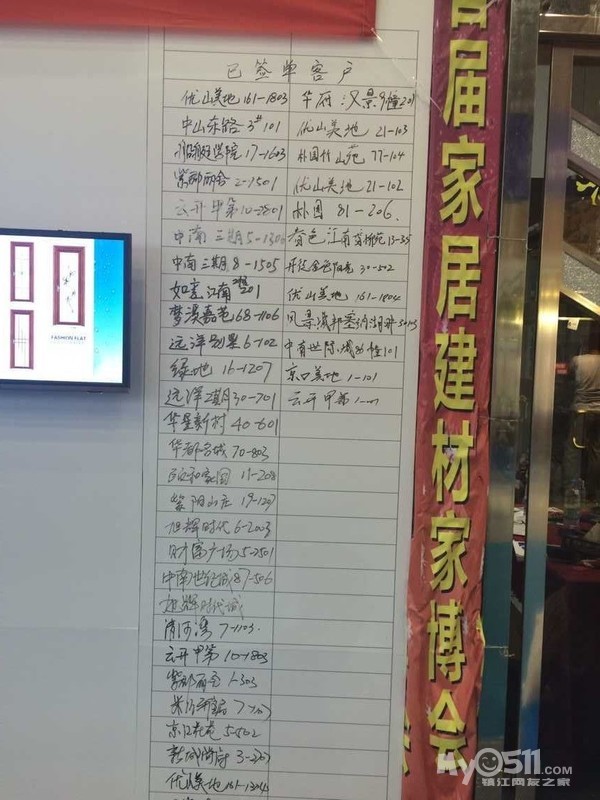 已签单客户
优山美地 161-1803
华府 汉景9幢201
中山东路 3# 101
优山美地 21-103
船艇学院 17-1603
朴园竹山苑 77-104
紫郡丽舍 2-1501
优山美地 21-102
云开甲第 10-2801
朴园 81-206.
中南三期 5-1306
春色江南 13-35
中南三期 8-1505
30-502
如意江南 201
优山美地 161-1804
梦溪嘉苑 68-1106
远洋 6-102
中南世际城86幢101
绿地 16-1207
京口美地 1-101
远洋2期 30-701
云开甲第
华星新村 40-601
华都名城 70-803
家园 11-208
紫阳山庄 19-1207
旭辉时代 6-2003
财富广场 5-2501
中南世纪城 87-506
旭辉时代城
清河湾 7-1103.
云开甲第 10-1803
紫郡丽舍 1-303
京江花苑 5-502
优山美地 161-1304
首届家居建材家博会
FASHION FLAT
My0511.com
镇江网友之家